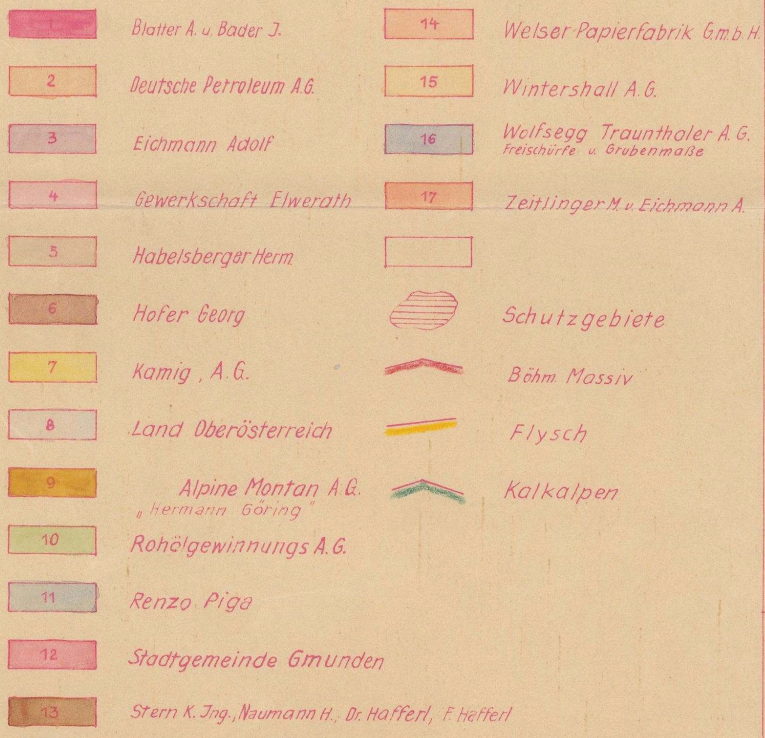 1 Blatter A. u. Bader J.
2 Deutsche Petroleum A.G.
3 Eichmann Adolf
4 Gewerkschaft Elwerath
5 Habelsberger Herm.
6 Hofer Georg
7 Kamig, A.G.
8 Land Oberösterreich
9 Alpine Montan A.G.
„Hermann Göring"
10 Rohölgewinnungs A.G.
11 Renzo Piga
12 Stadtgemeinde Gmunden
13 Stern K. Jng., Naumann H., Dr. Hafferl, F. Hafferl
14 Welser-Papierfabrik G.m.b.H.
15 Wintershall A.G.
16 Wolfsegg Traunthaler A.G.
Freischürfe u. Grubenmaße
17 Zeitlinger M. u. Eichmann A.
Schutzgebiete
Böhm. Massiv
Flysch
Kalkalpen